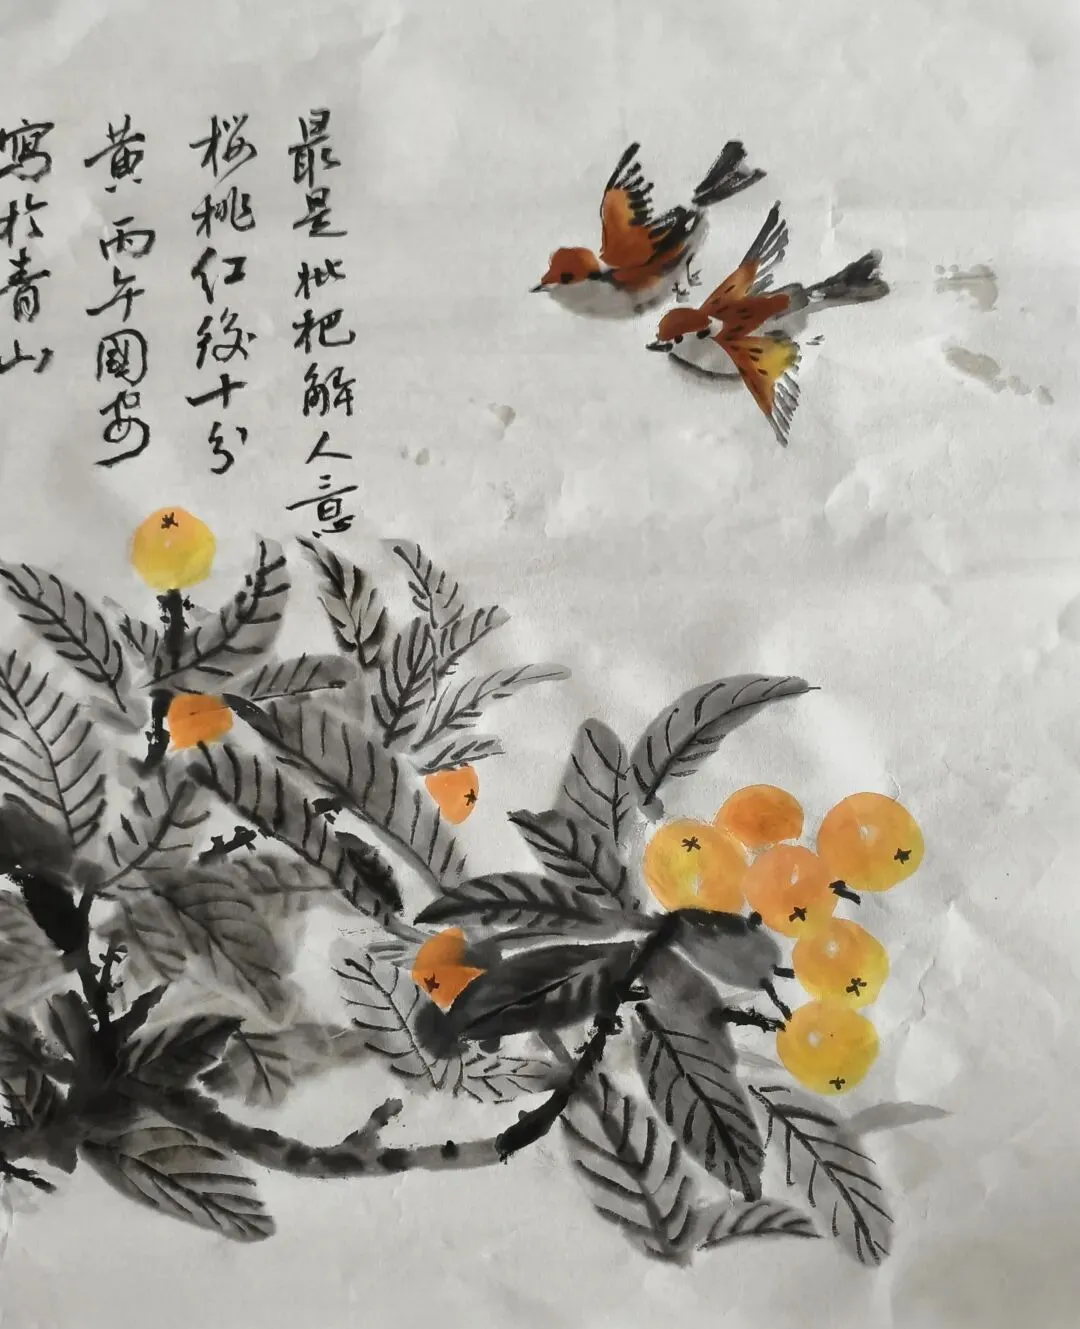 最是枇杷解人意
桜桃红後十分
黄 丙午國安
寫於青山